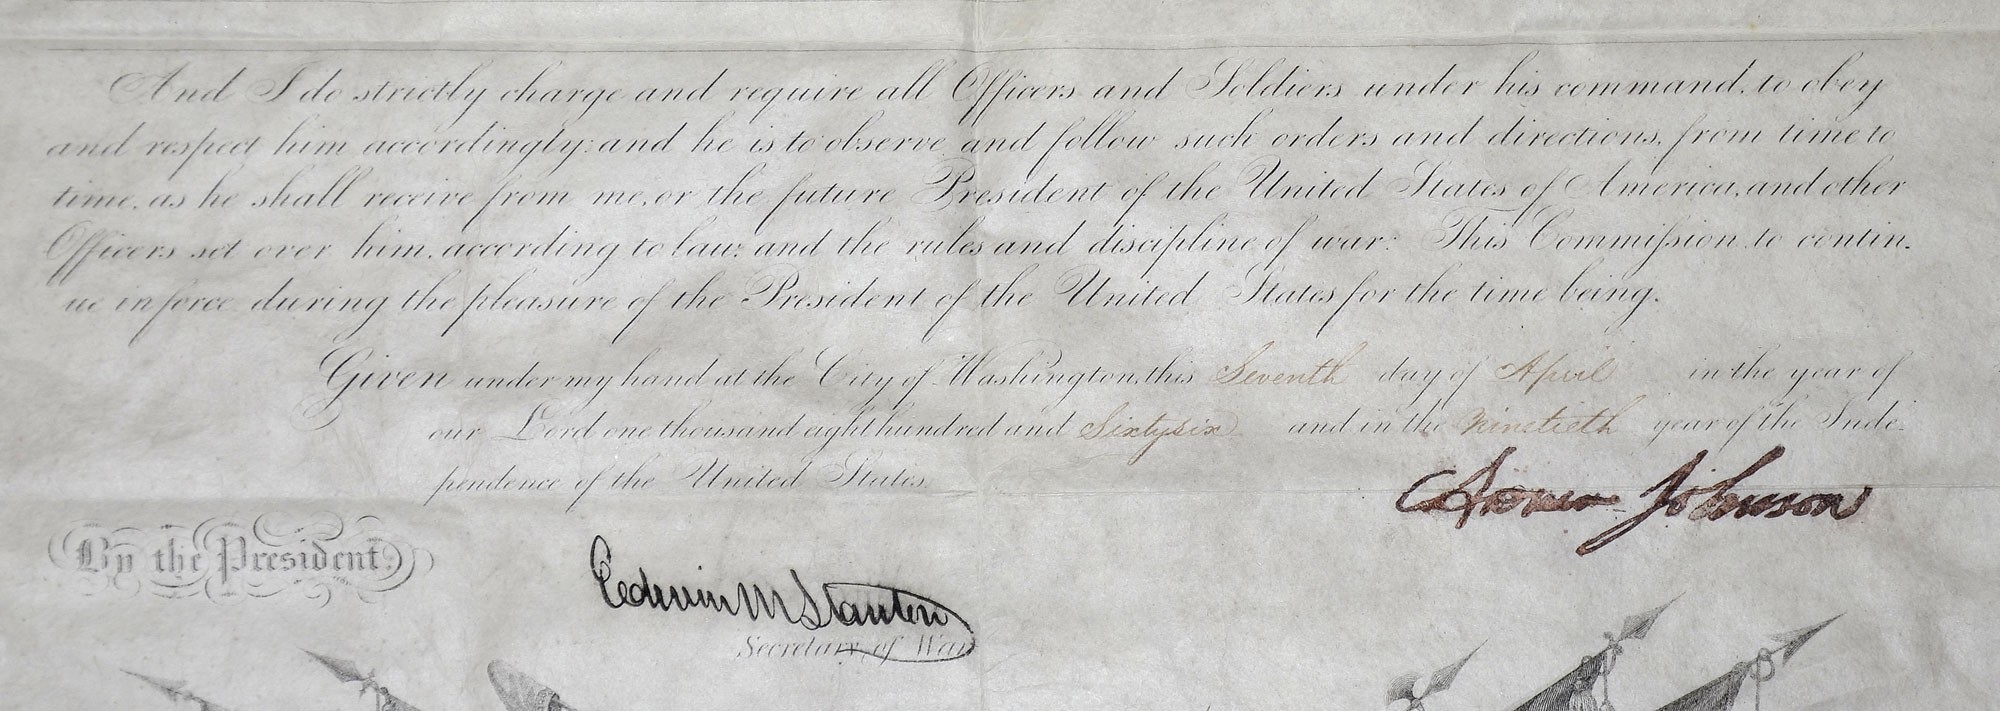 And I do strictly charge and require all Officers and Soldiers under his command, to obey
and respect him accordingly: and he is to observe and follow such orders and directions, from time to
time, as he shall receive from me, or the future President of the United States of America, and other
Officers set over him, according to law; and the rules and discipline of war: This Commission to contin-
ue in force during the pleasure of the President of the United States for the time being.
Given under my hand at the City of Washington, this Seventh day of April in the year of
our Lord one thousand eight hundred and Sixtysix and in the Ninetieth year of the Inde-
pendence of the United States.
Andrew Johnson
By the President,
Edwin M Stanton
Secretary of War